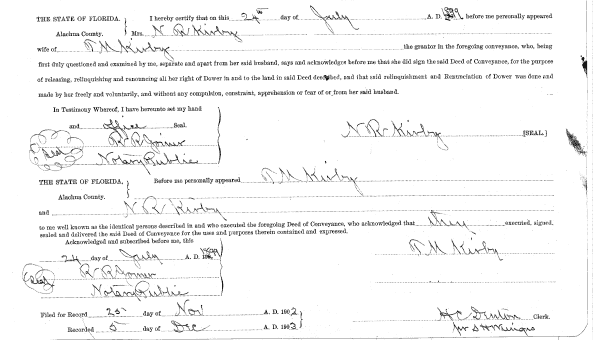 THE STATE OF FLORIDA, } I hereby certify that on this 24th day of July A. D. 1899 before me personally appeared
Alachua County. } Mrs. N R Kirby
wife of T M Kirby the grantor in the foregoing conveyance, who, being
first duly questioned and examined by me, separate and apart from her said husband, says and acknowledges before me that she did sign the said Deed of Conveyance, for the purpose
of releasing, relinquishing and renouncing all her right of Dower in and to the land in said Deed described, and that said relinquishment and Renunciation of Dower was done and
made by her freely and voluntarily, and without any compulsion, constraint, apprehension or fear of or from her said husband.
In Testimony Whereof, I have hereunto set my hand
and office Seal.
N R Kirby [SEAL.]
Seal R R Joiner
Notary Public
THE STATE OF FLORIDA, } Before me personally appeared T M Kirby
Alachua County. }
and N R Kirby
to me well known as the identical persons described in and who executed the foregoing Deed of Conveyance, who acknowledged that they executed, signed,
sealed and delivered the said Deed of Conveyance for the uses and purposes therein contained and expressed.
Acknowledged and subscribed before me, this
T M Kirby
24 day of July A. D. 1899
Seal R R Joiner
Notary Public
Filed for Record 25 day of Nov A. D. 1902
H C Denton Clerk.
Recorded 5 day of Dec A. D. 1903
per